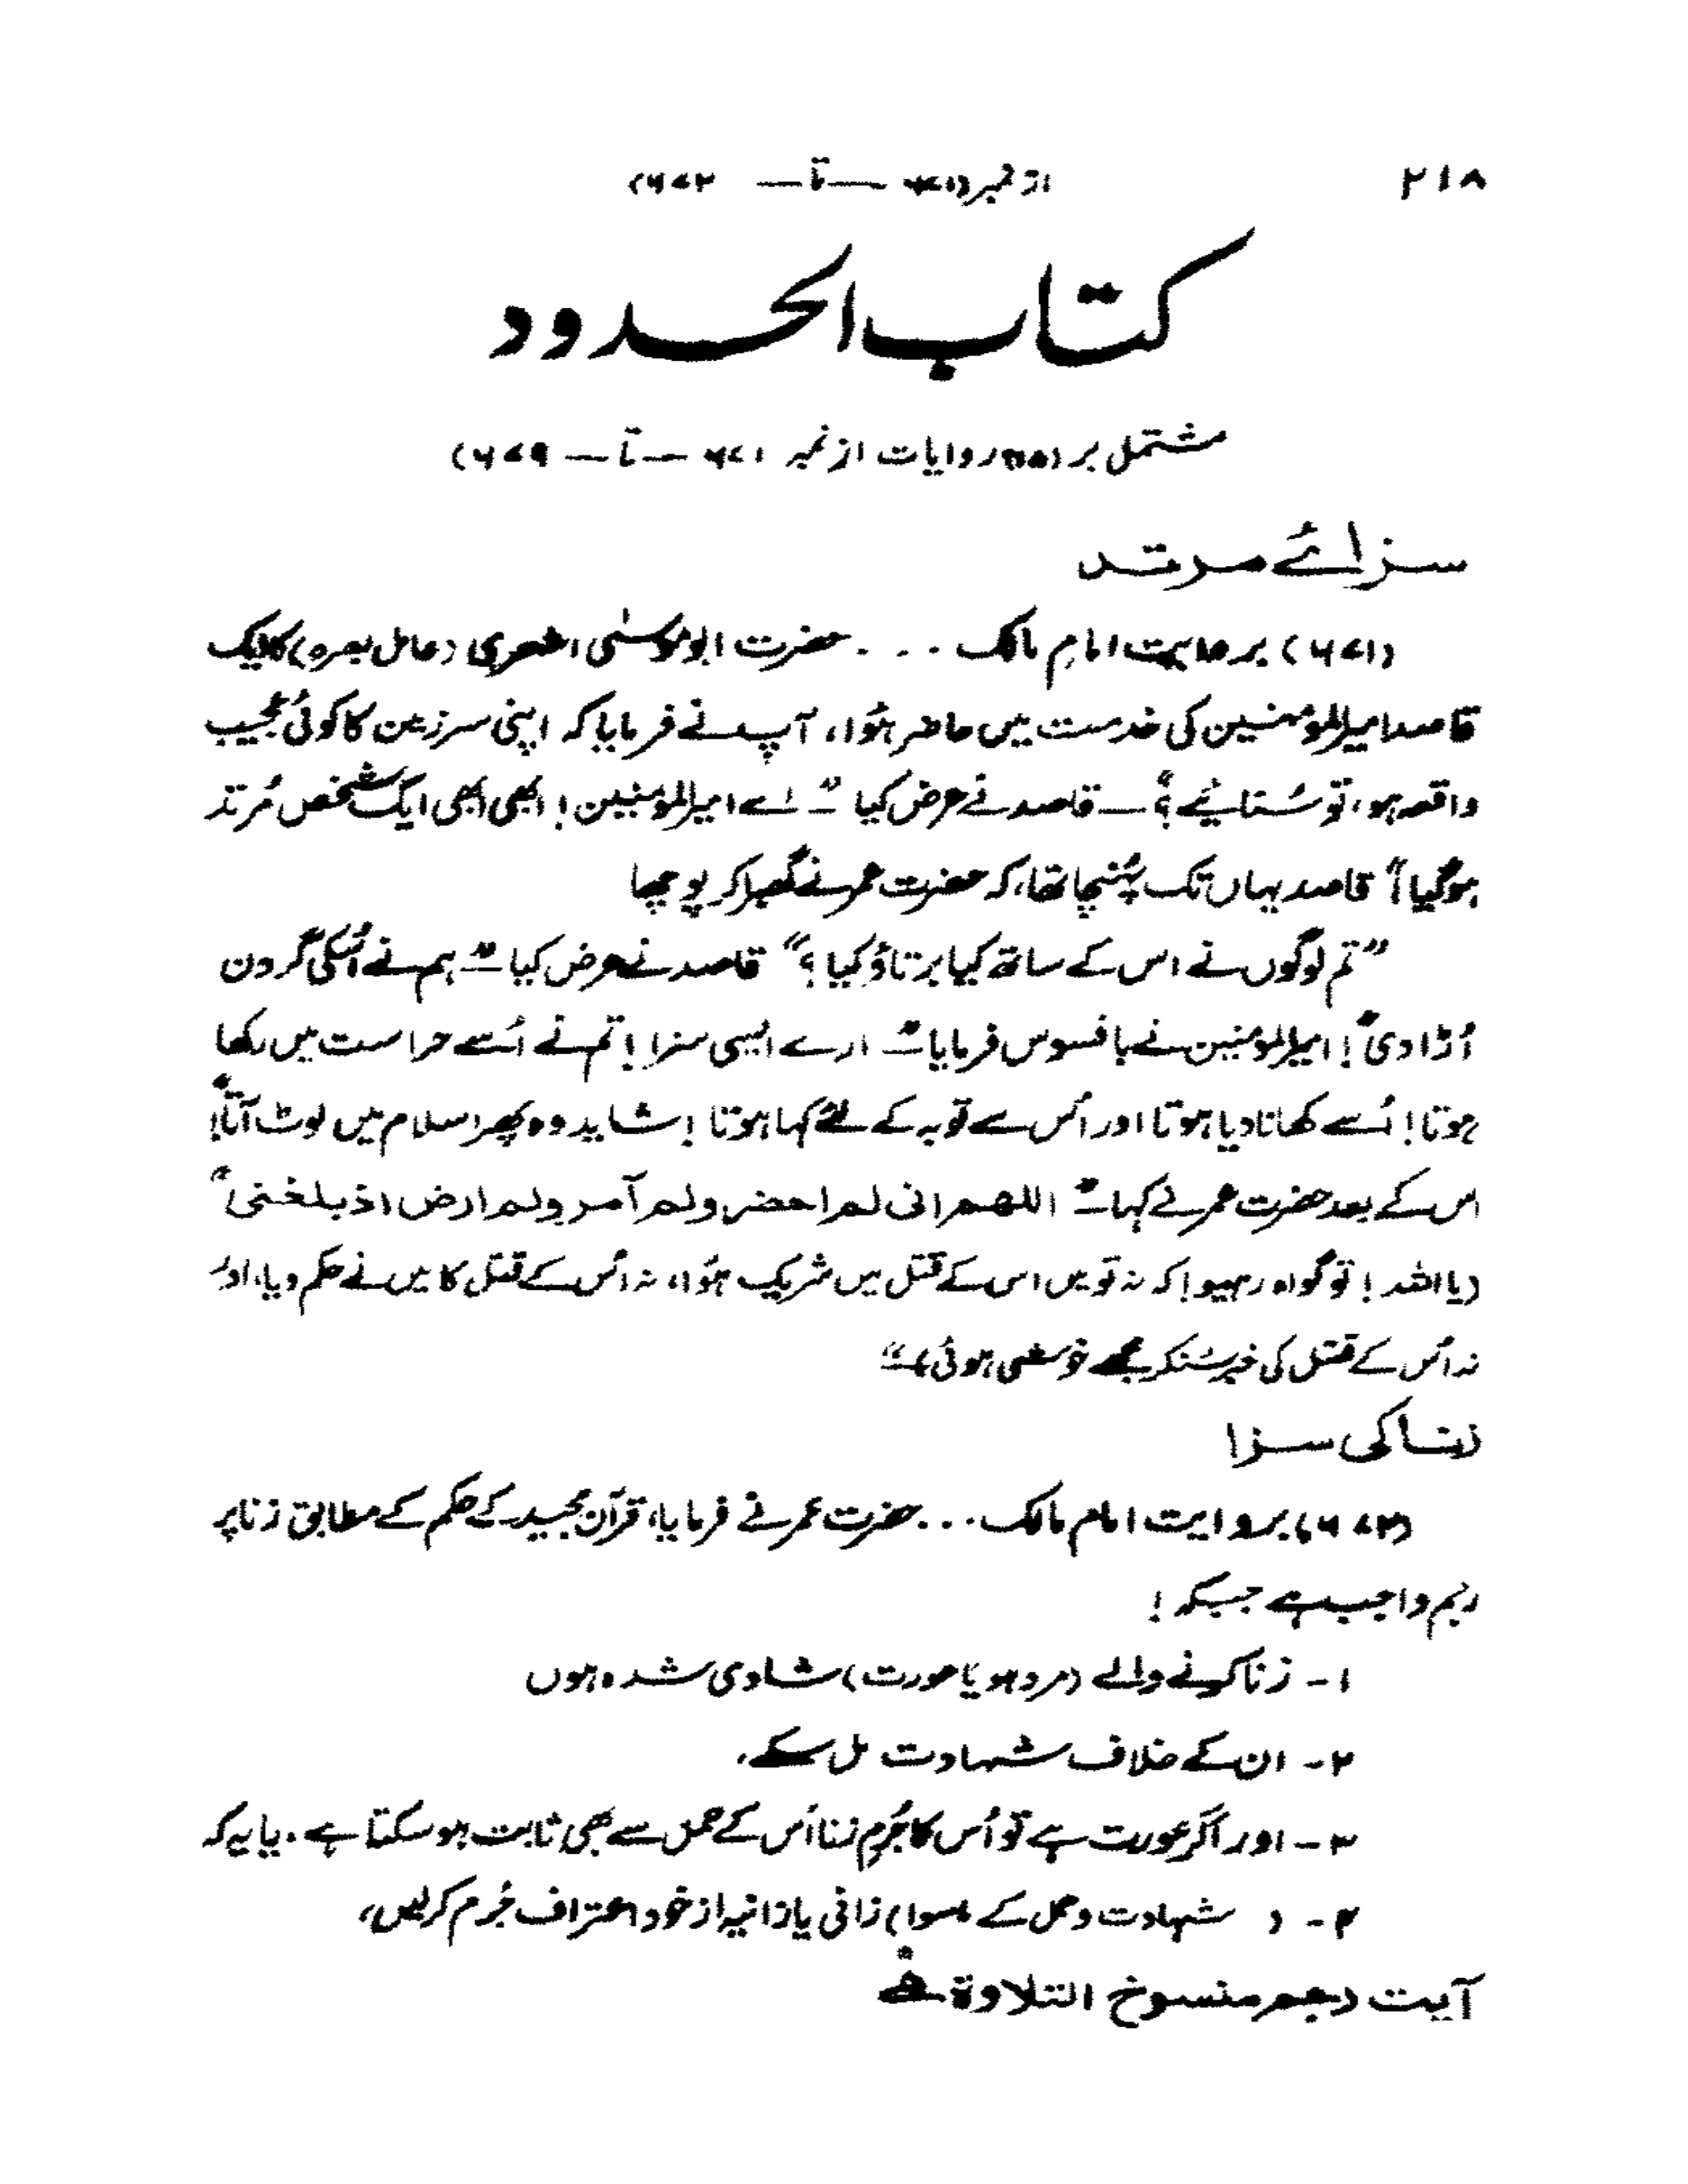 ۲۱۸ از نمبر (۶۷۱ — تا — ۶۷۲)
کتاب الحدود
مشتمل بر روایات از نمبر ۶۷۱ — تا — ۶۷۹)
سزائے مرتد
(۶۷۱) بروایت امام مالک . . . حضرت ابو موسٰی اشعری (عامل بصرہ) کا ایک
قاصد امیرالمؤمنین کی خدمت میں حاضر ہُوا، آپ نے فرمایا کہ اپنی سرزمین کا کوئی عجیب
واقعہ ہو، تو سُنائیے؟ — قاصد نے عرض کیا "اے امیرالمؤمنین! ابھی ابھی ایک شخص مُرتد
ہو گیا!" قاصد یہاں تک پہُنچا تھا، کہ حضرت عمر نے گھبرا کر پوچھا
"تم لوگوں نے اس کے ساتھ کیا برتاؤ کیا؟" قاصد نے عرض کیا "ہم نے اُسکی گردن
اُڑا دی"! امیرالمؤمنین نے بافسوس فرمایا "ارے ایسی سزا! تم نے اُسے حراست میں رکھا
ہوتا! اُسے کھانا دیا ہوتا اور اُس سے توبہ کے لئے کہا ہوتا! شاید وہ پھر اسلام میں لوٹ آتا"!
اس کے بعد حضرت عمر نے کہا "اللھم انی لم احضر ولم آمر ولم ارض اذ بلغنی"
(یا اللہ! تو گواہ رہیو! کہ نہ تو میں اس کے قتل میں شریک ہُوا، نہ اُس کے قتل کا میں نے حکم دیا، اور
نہ اُس کے قتل کی خبر سُنکر مجھے خوشی ہوئی)"
زنا کی سزا
(۶۷۲) بروایت امام مالک . . . حضرت عمر نے فرمایا، قرآن مجید کے حکم کے مطابق زنا پر
رجم واجب ہے جبکہ!
۱ - زنا کرنے والے (مرد ہو یا عورت) شادی شدہ ہوں
۲ - ان کے خلاف شہادت مل سکے،
۳ - اور اگر عورت ہے تو اُس کا جُرمِ زنا اُس کے حمل سے بھی ثابت ہو سکتا ہے. یا یہ کہ
۴ - ( شہادت و حمل کے ماسوا) زانی یا زانیہ از خود اعتراف جُرم کر لیں،
آیت رجم منسوخ التلاوۃ ہے